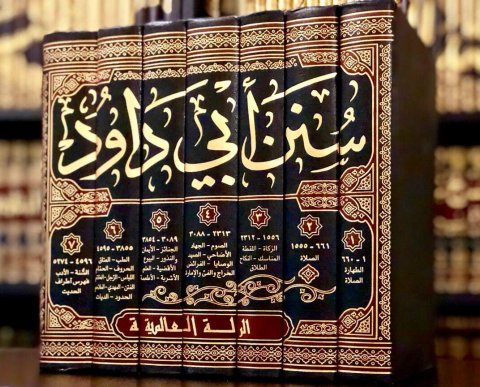 سُنَن أَبِي دَاوُد
١
١ - ٦٦٠
الطهارة
الصلاة
٢
٦٦١ - ١٥٥٥
الصلاة
٣
١٥٥٦ - ٢٣١٢
الزكاة - اللقطة
المناسك - النكاح
الطلاق
٤
٢٣١٣ - ٣٠٨٨
الصوم - الجهاد
الأضاحي - الصيد
الوصايا - الفرائض
الخراج والفيء والإمارة
٥
٣٠٨٩ - ٣٨٥٤
الجنائز - الأيمان
والنذور - البيوع
الأقضية - العلم
الأشربة - الأطعمة
٦
٣٨٥٥ - ٤٥٩٥
الطب - العتاق
الحروف - الحمام
اللباس - الترجل - الخاتم
الفتن - المهدي - الملاحم
الحدود - الديات
٧
٤٥٩٦ - ٥٢٧٤
السنة - الأدب
فهرس أطراف
الحديث
العالمية